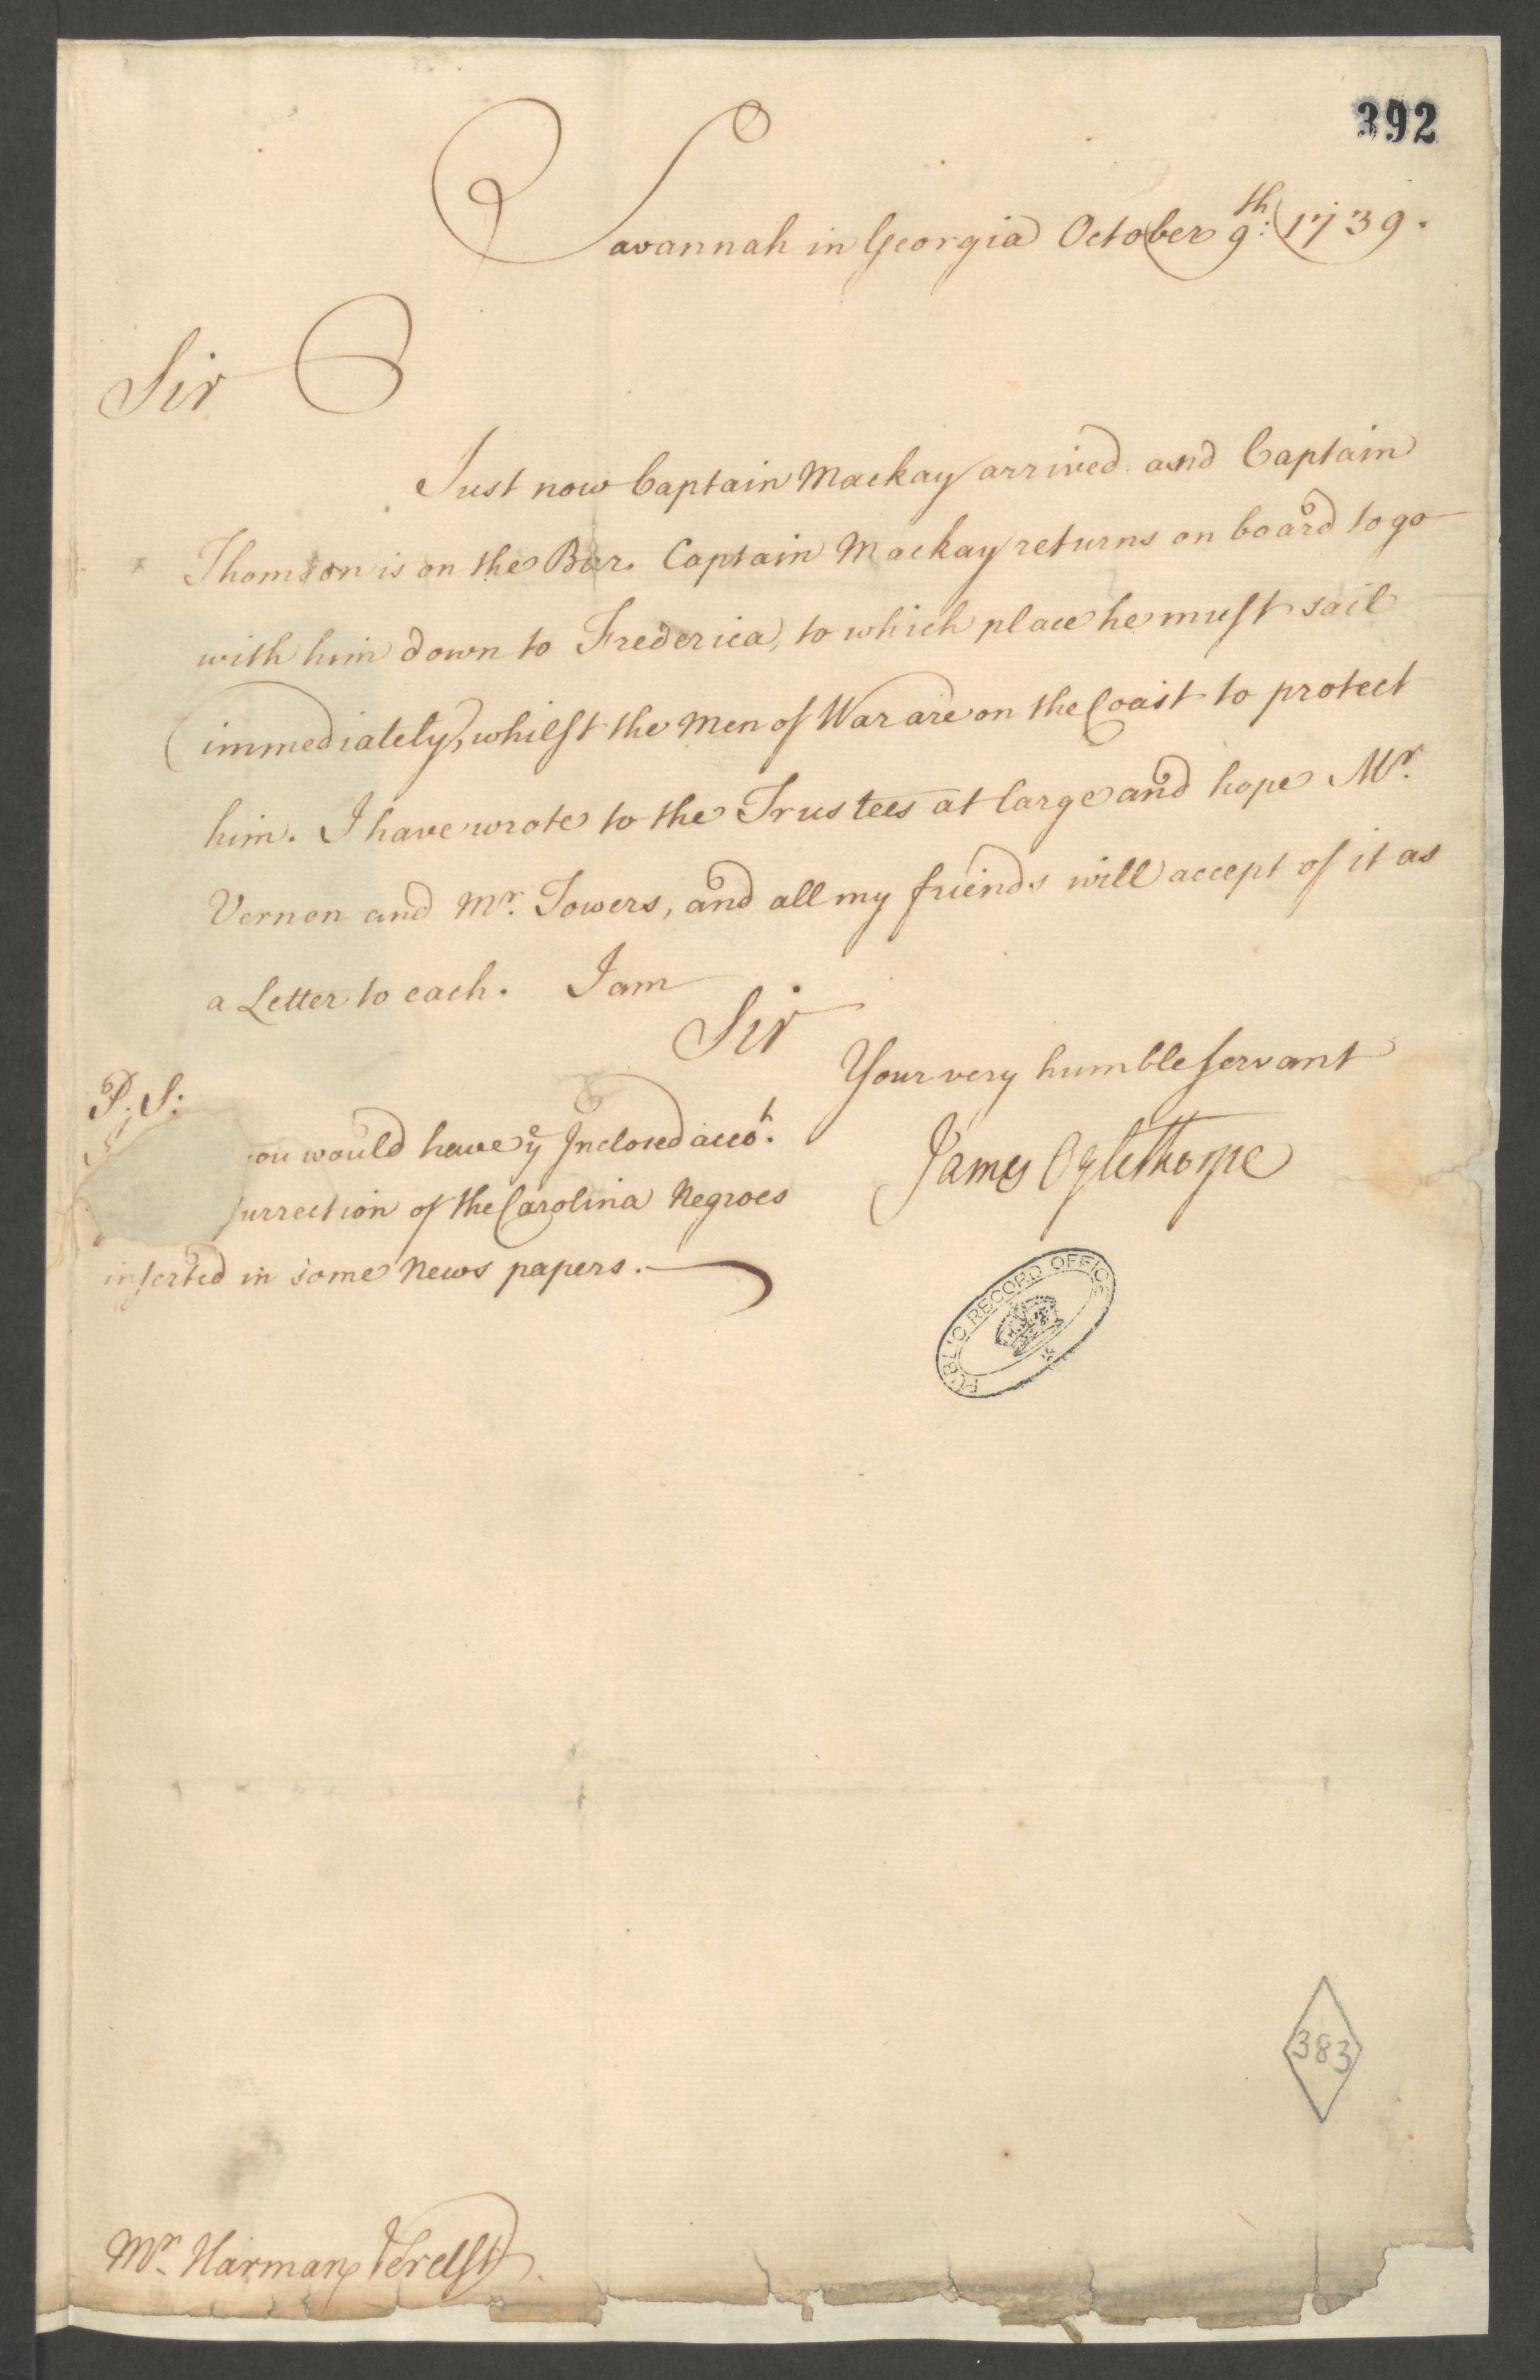 392
Savannah in Georgia October 9th: 1739.
Sir
Just now Captain Mackay arrived and Captain
Thomson is on the Bar. Captain Mackay returns on board to go
with him down to Frederica, to which place he must sail
immediately, whilst the Men of War are on the Coast to protect
him. I have wrote to the Trustees at large and hope Mr.
Vernon and Mr. Towers, and all my friends will accept of it as
a Letter to each. I am
Sir
Your very humble servant
James Oglethorpe
P.S:
ou would have ye Inclosed accot.
surrection of the Carolina Negroes
inserted in some News papers.
PUBLIC RECORD OFFICE
383
Mr. Harman Verelst